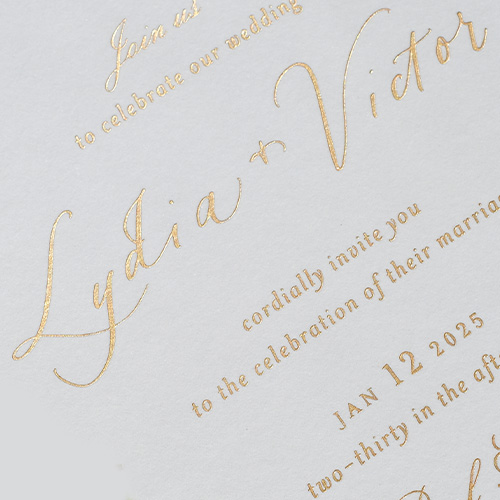 Join us
to celebrate our wedding
Lydia + Victor
cordially invite you
to the celebration of their
JAN 12 2025
two-thirty in the